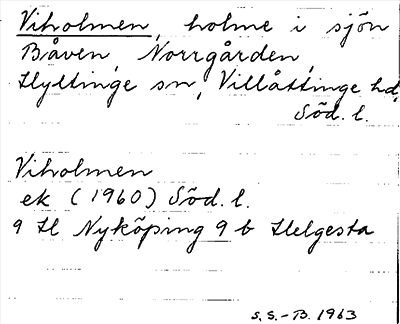 Viholmen, holme i sjön
Båven, Norrgården,
Hyltinge sn, Villåttinge hd,
Söd. l.
Viholmen
ek (1960) Söd. l.
9 H Nyköping 9 b Helgesta
S. S.-B. 1963